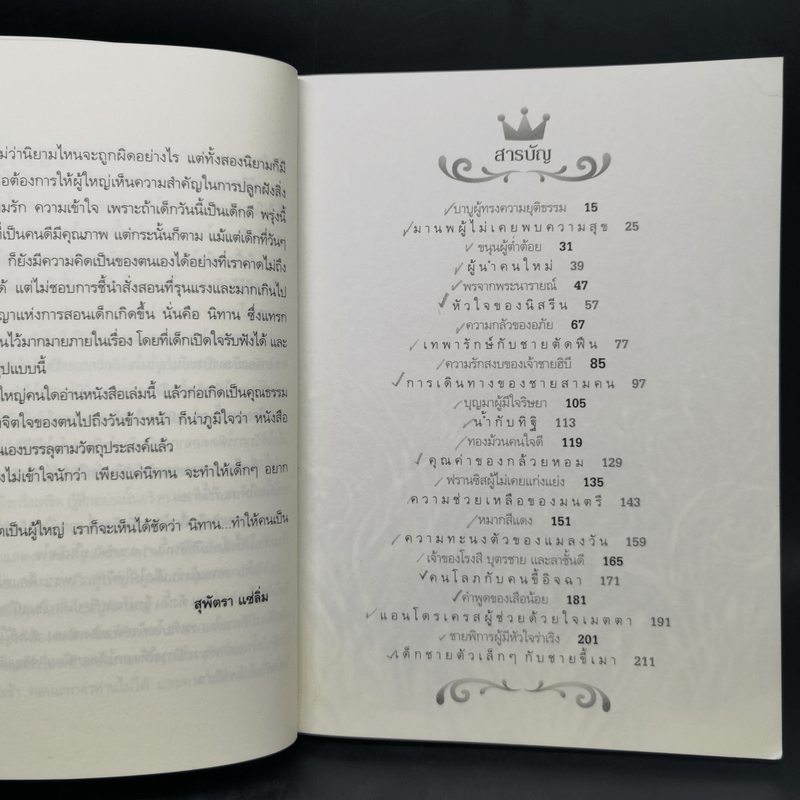 ม่ว่านิยามไหนจะถูกผิดอย่างไร แต่ทั้งสองนิยามก็มี
อต้องการให้ผู้ใหญ่เห็นความสำคัญในการปลูกฝังสิ่ง
มรัก ความเข้าใจ เพราะถ้าเด็กวันนี้เป็นเด็กดี พรุ่งนี้
ที่เป็นคนดีมีคุณภาพ แต่กระนั้นก็ตาม แม้แต่เด็กที่วันๆ
ก็ยังมีความคิดเป็นของตนเองได้อย่างที่เราคาดไม่ถึง
ด้ แต่ไม่ชอบการชี้นำสั่งสอนที่รุนแรงและมากเกินไป
ญาแห่งการสอนเด็กเกิดขึ้น นั่นคือ นิทาน ซึ่งแทรก
นไว้มากมายภายในเรื่อง โดยที่เด็กเปิดใจรับฟังได้ และ
ูปแบบนี้
ใหญ่คนใดอ่านหนังสือเล่มนี้ แล้วก่อเกิดเป็นคุณธรรม
จิตใจของตนไปถึงวันข้างหน้า ก็น่าภูมิใจว่า หนังสือ
นเองบรรลุตามวัตถุประสงค์แล้ว
งไม่เข้าใจนักว่า เพียงแค่นิทาน จะทำให้เด็กๆ อยาก
ตเป็นผู้ใหญ่ เราก็จะเห็นได้ชัดว่า นิทาน...ทำให้คนเป็น
สุพัตรา แซ่ลิ่ม
สารบัญ
บาบูผู้ทรงความยุติธรรม 15
มานพผู้ไม่เคยพบความสุข 25
ขนุนผู้ต่ำต้อย 31
ผู้นำคนใหม่ 39
พรจากพระนารายณ์ 47
หัวใจของนิสรีน 57
ความกลัวของอภัย 67
เทพารักษ์กับชายตัดฟืน 77
ความรักสงบของเจ้าชายฮิบี 85
การเดินทางของชายสามคน 97
บุญมาผู้มีใจริษยา 105
น้ำกับทิฐิ 113
ทองม้วนคนใจดี 119
คุณค่าของกล้วยหอม 129
ฟรานซิสผู้ไม่เคยแก่งแย่ง 135
ความช่วยเหลือของมนตรี 143
หมากสีแดง 151
ความทะนงตัวของแมลงวัน 159
เจ้าของโรงสี บุตรชาย และลาชั้นดี 165
คนโลภกับคนขี้อิจฉา 171
คำพูดของเสือน้อย 181
แอนโดรเครสผู้ช่วยด้วยใจเมตตา 191
ชายพิการผู้มีหัวใจร่าเริง 201
เด็กชายตัวเล็กๆ กับชายขี้เมา 211